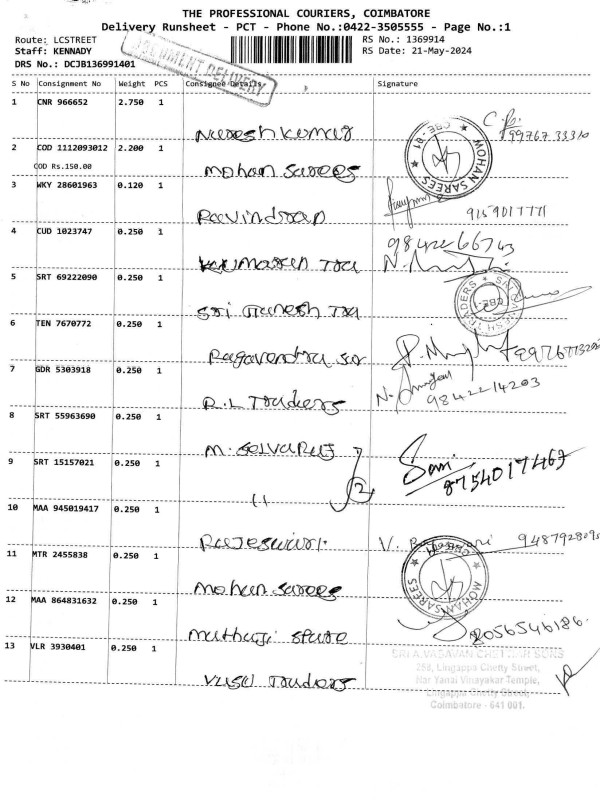 THE PROFESSIONAL COURIERS, COIMBATORE
Delivery Runsheet - PCT - Phone No.:0422-3505555 - Page No.:1
Route: LCSTREET
RS No.: 1369914
Staff: KENNADY
RS Date: 21-May-2024
DRS No.: DCJB136991401
DELIVERY
S No Consignment No Weight PCS Consignee Details Signature
1 CNR 966652 2.750 1
Nareshkumar
99767 33310
2 COD 1112093012 2.200 1
COD Rs.150.00
Mohan Sarees
MOHAN SAREES CBE-01
3 WKY 28601963 0.120 1
Ravindran
9159017771
4 CUD 1023747 0.250 1
Kumaran Tra
9842266743
5 SRT 69222090 0.250 1
Sri Ganesh Tra
6 TEN 7670772 0.250 1
Ragavendra Sar
7 GDR 5303918 0.250 1
R.L Traders
9842214203
8 SRT 55963690 0.250 1
M. Selvaraj
9 SRT 15157021 0.250 1
11
2
8754017467
10 MAA 945019417 0.250 1
Rajeswari
V.
11 MTR 2455838 0.250 1
Mohan Sarees
MOHAN SAREES
12 MAA 864831632 0.250 1
Muthuji Store
8056546186
13 VLR 3930401 0.250 1
Traders
SRI A.VASAVAN CHETTIAR SONS
258, Lingappa Chetty Street,
Nar Yanai Vinayakar Temple,
Lingappa Chetty Street,
Coimbatore - 641 001.